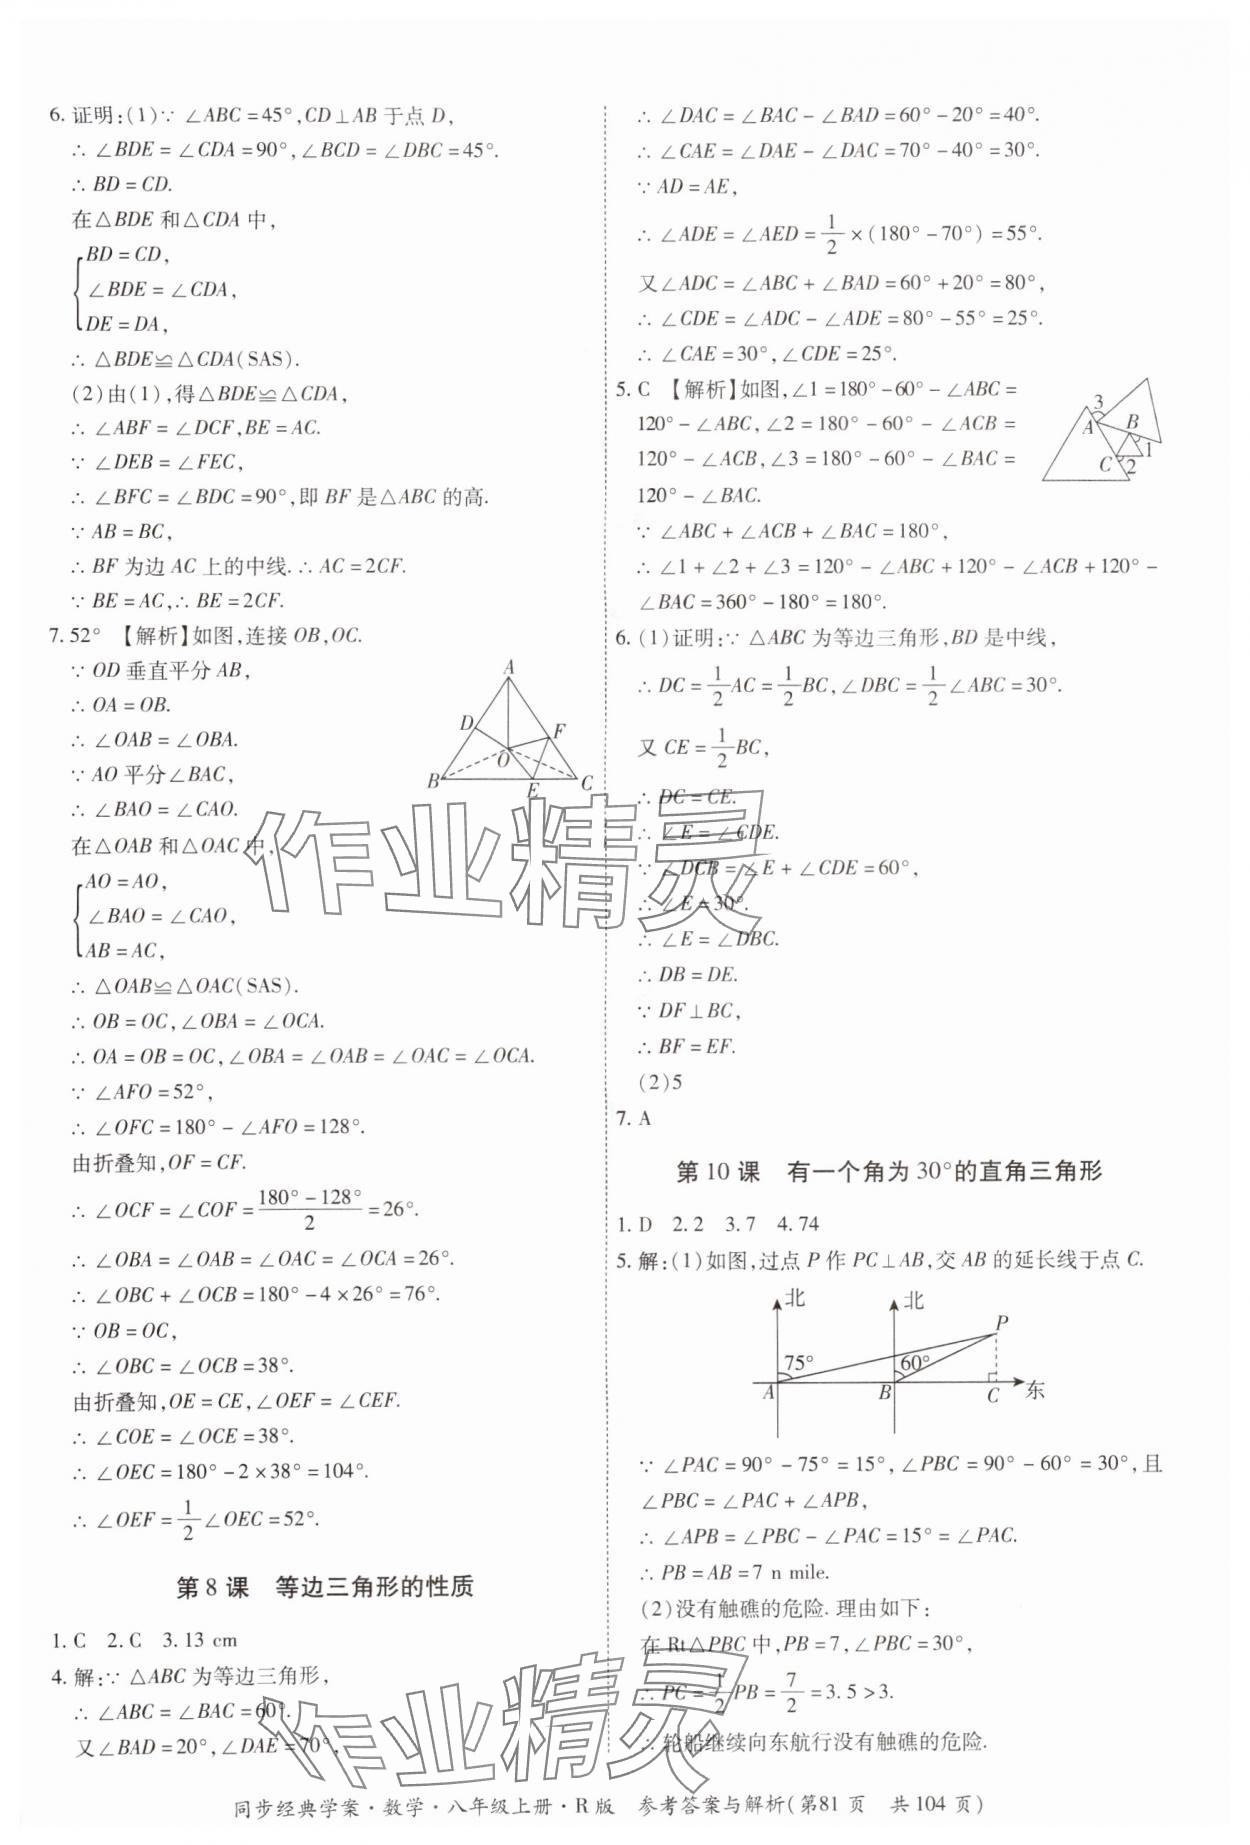 6. 证明:(1)∵ ∠ABC=45°,CD⊥AB 于点 D,
∴ ∠BDE=∠CDA=90°,∠BCD=∠DBC=45°.
∴ BD=CD.
在△BDE 和△CDA 中,
BD=CD,
∠BDE=∠CDA,
DE=DA,
∴ △BDE≌△CDA(SAS).
(2)由(1),得△BDE≌△CDA,
∴ ∠ABF=∠DCF,BE=AC.
∵ ∠DEB=∠FEC,
∴ ∠BFC=∠BDC=90°,即 BF 是△ABC 的高.
∵ AB=BC,
∴ BF 为边 AC 上的中线.∴ AC=2CF.
∵ BE=AC,∴ BE=2CF.
7. 52° 【解析】如图,连接 OB,OC.
∵ OD 垂直平分 AB,
∴ OA=OB.
∴ ∠OAB=∠OBA.
∵ AO 平分∠BAC,
∴ ∠BAO=∠CAO.
在△OAB 和△OAC 中,
AO=AO,
∠BAO=∠CAO,
AB=AC,
∴ △OAB≌△OAC(SAS).
∴ OB=OC,∠OBA=∠OCA.
∴ OA=OB=OC,∠OBA=∠OAB=∠OAC=∠OCA.
∵ ∠AFO=52°,
∴ ∠OFC=180°-∠AFO=128°.
由折叠知,OF=CF.
∴ ∠OCF=∠COF=(180°-128°)/2=26°.
∴ ∠OBA=∠OAB=∠OAC=∠OCA=26°.
∴ ∠OBC+∠OCB=180°-4×26°=76°.
∵ OB=OC,
∴ ∠OBC=∠OCB=38°.
由折叠知,OE=CE,∠OEF=∠CEF.
∴ ∠COE=∠OCE=38°.
∴ ∠OEC=180°-2×38°=104°.
∴ ∠OEF=1/2∠OEC=52°.
A
D
F
O
B
E
C
第 8 课 等边三角形的性质
1. C 2. C 3. 13 cm
4. 解:∵ △ABC 为等边三角形,
∴ ∠ABC=∠BAC=60°.
又∠BAD=20°,∠DAE=70°,
∴ ∠DAC=∠BAC-∠BAD=60°-20°=40°.
∴ ∠CAE=∠DAE-∠DAC=70°-40°=30°.
∵ AD=AE,
∴ ∠ADE=∠AED=1/2×(180°-70°)=55°.
又∠ADC=∠ABC+∠BAD=60°+20°=80°,
∴ ∠CDE=∠ADC-∠ADE=80°-55°=25°.
∴ ∠CAE=30°,∠CDE=25°.
5. C 【解析】如图,∠1=180°-60°-∠ABC=
120°-∠ABC,∠2=180°-60°-∠ACB=
120°-∠ACB,∠3=180°-60°-∠BAC=
120°-∠BAC.
3
A
B
1
C
2
∵ ∠ABC+∠ACB+∠BAC=180°,
∴ ∠1+∠2+∠3=120°-∠ABC+120°-∠ACB+120°-
∠BAC=360°-180°=180°.
6. (1)证明:∵ △ABC 为等边三角形,BD 是中线,
∴ DC=1/2AC=1/2BC,∠DBC=1/2∠ABC=30°.
又 CE=1/2BC,
∴ DC=CE.
∴ ∠E=∠CDE.
∵ ∠DCB=∠E+∠CDE=60°,
∴ ∠E=30°.
∴ ∠E=∠DBC.
∴ DB=DE.
∵ DF⊥BC,
∴ BF=EF.
(2)5
7. A
第 10 课 有一个角为 30°的直角三角形
1. D 2. 2 3. 7 4. 74
5. 解:(1)如图,过点 P 作 PC⊥AB,交 AB 的延长线于点 C.
北
北
P
75°
60°
A
B
C
东
∵ ∠PAC=90°-75°=15°,∠PBC=90°-60°=30°,且
∠PBC=∠PAC+∠APB,
∴ ∠APB=∠PBC-∠PAC=15°=∠PAC.
∴ PB=AB=7 n mile.
(2)没有触礁的危险. 理由如下:
在 Rt△PBC 中,PB=7,∠PBC=30°,
∴ PC=1/2PB=7/2=3.5>3.
∴ 轮船继续向东航行没有触礁的危险.
作业精灵
作业精灵
同步经典学案·数学·八年级上册·R 版 参考答案与解析(第81页 共 104 页)